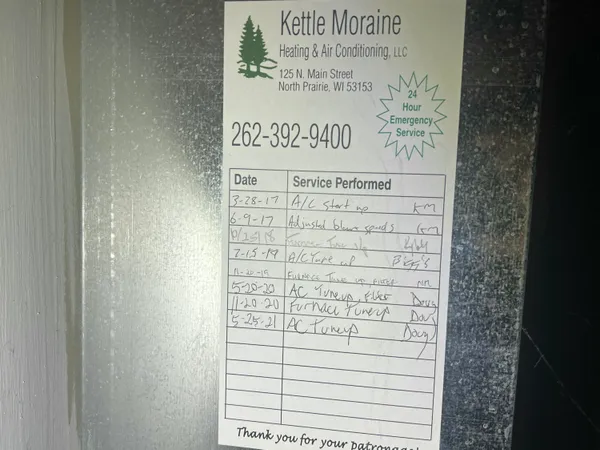 Kettle Moraine
Heating & Air Conditioning, LLC
125 N. Main Street
North Prairie, WI 53153
24
Hour
Emergency
Service
262-392-9400
Date Service Performed
3-28-17 A/C Start up KM
6-9-17 Adjusted blower speeds KM
Furnace Tune up
7-15-19 A/C Tune up
11-20-19 Furnace Tune up filter
5-20-20 AC Tuneup, filter Doug
11-20-20 Furnace Tuneup Doug
5-25-21 AC Tuneup Doug
Thank you for your patronage!